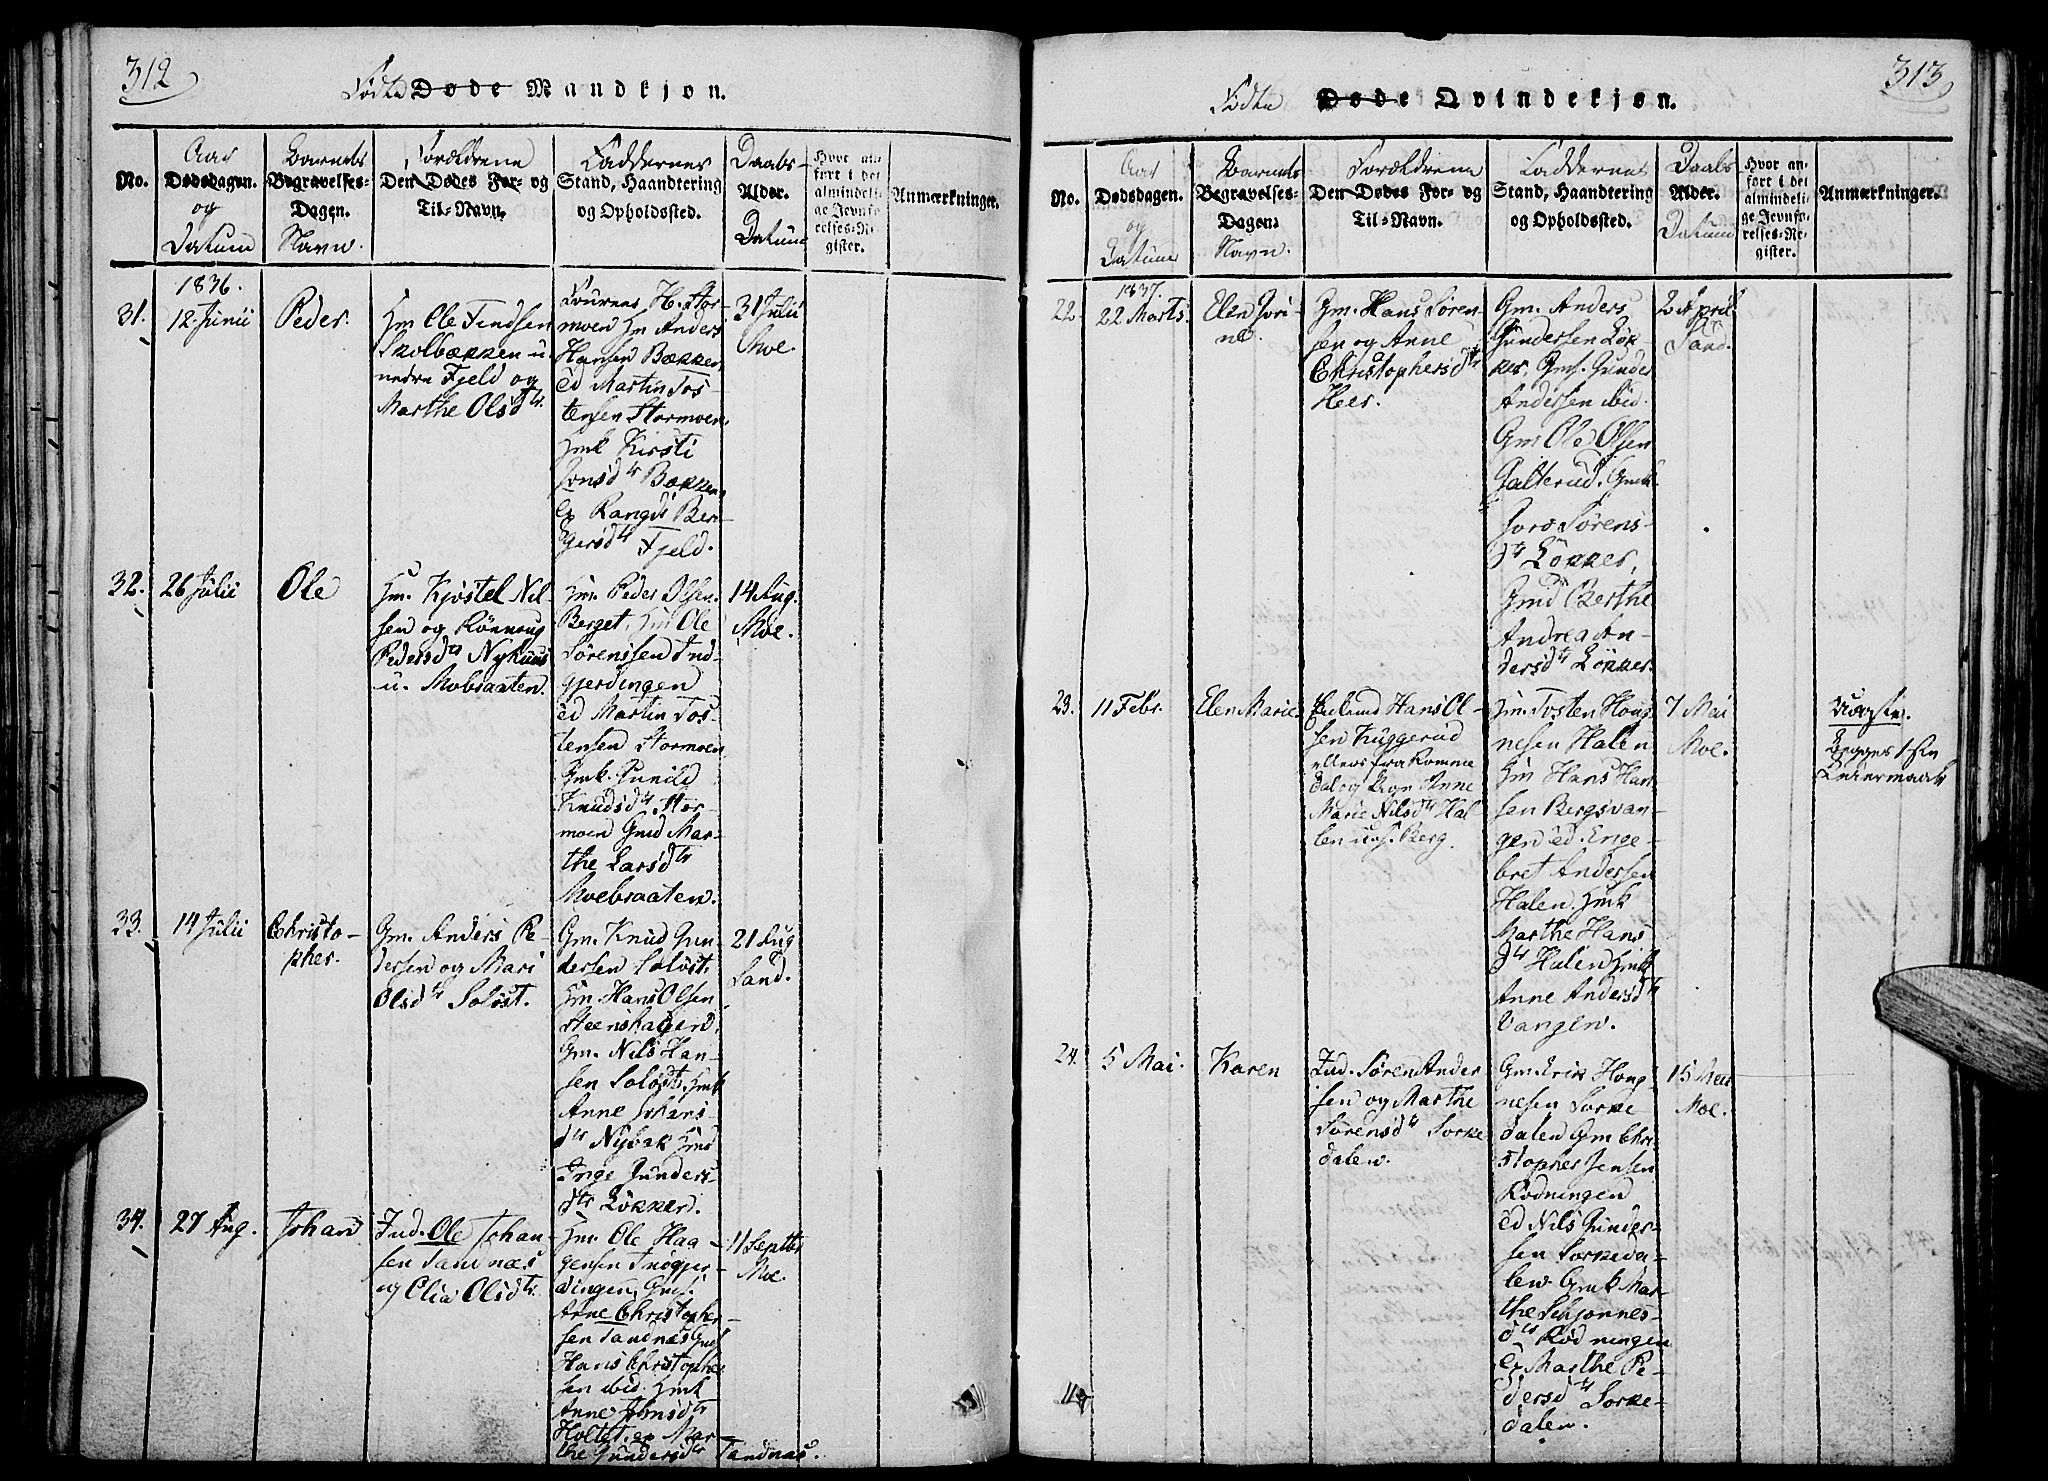 312
Födte Døde Mandkjøn.
No.
Aar
Dødsdagen.
og
Datum
Barnets
Begravelses-
Dagen.
Navn.
Forældrene
Den Dødes For- og
Til-Navn.
Faddernes
Stand, Haandtering
og Opholdssted.
Daabs-
Alder.
Datum
Hvor an-
ført i det
almindeli-
ge Jevnfø-
relses-Re-
gister.
Anmærkninger.
1836.
31.
12. Junii
Peder.
Hm Ole Findsen
Skolbækken u.
nedre Fjeld og
Marthe Olsdtr.
H. Stor-
moen Hm Anders
Hansen Bækken
ed Martin Tos-
tensen Stormoen
Hmk Kirsti
Jonsdtr Bækken
Rangdi Ber-
gersdtr Fjeld.
31 Julii
Moe.
32.
26 Julii
Ole
Hm. Kjøstel Nil-
sen og Rönnoug
Pedersdtr Nyhuus
u. Mobraaten.
Hm. Peder Olsen
Berget, Hm Ole
Sørenssen Ind-
gjerdingen
ed Martin Tos-
tensen Stormoen
Gmk. Gunild
Knudsdtr Stor-
moen Gmd Mar-
the Larsdtr
Moebraaten.
14 Aug.
Moe.
33.
14 Julii
Christo-
pher.
Gm. Anders Pe-
dersen og Mari
Olsdtr Soløst.
Gm. Knud Gun-
dersen Soløst.
Hm. Hans Olsen
Steenshagen.
Gm. Nils Han-
sen Soløst. Hmk
Anne Johans-
dtr Nybak Hmd
Inge Gunders-
dtr Løkker.
21 Aug
Sand.
34.
27 Aug.
Johan
Ind. Ole Johan-
sen Sandnæs
og Olia Olsdtr.
Hm. Ole Haa-
gensen Indgjer-
dingen, Gms.
Arne Christopher-
sen Sandnæs
Hans Christopher-
sen ibid. Hmk
Anne Jonsdtr
Holtet. ep Mar-
the Gundersdtr Sandnæs.
11 Septbr
Moe.
313
Födte Døde Qvindekjøn.
No.
Aar
Dødsdagen.
og
Datum
Barnets
Begravelses-
Dagen.
Navn.
Forældrene
Den Dødes For- og
Til-Navn.
Faddernes
Stand, Haandtering
og Opholdssted.
Daabs
Alder.
Datum
Hvor an-
ført i det
almindeli-
ge Jevnfø-
relses-Re-
gister.
Anmærkninger.
1837.
22.
22 Marts.
Elen Jori-
ne.
Gm. Hans Søren-
sen og Anne
Christophersdtr
Heer.
Gm. Anders
Gundersen Løk-
ker, Gms. Gunder
Andersen ibid.
Gm Ole Olsen
Galterud. Gmk.
Joro Sørens-
dtr Løkker,
Gmd Berthe
Andrea An-
dersdtr Løkker.
2 April
Sand.
23.
11 Febr.
Elen Marie
Hans Ol-
sen Kuggerud
ellers fra Romme
dal og Pige Anne
Marie Nilsdtr Hal-
len u. s. Berg.
Hm. Tosten Hong
nesen Halen
Hm Hans Han-
sen Bergsvan-
gen ed. Enge-
bret Andersen
Halen. Hmk
Marthe Hans
dtr Halen Hmk
Anne Andersdtr
Vangen.
7 Mai
Moe.
Uægte.
Begges 1ste
Leiermaal
24.
5 Mai.
Karen
Ind. Søren Ander
sen og Marthe
Sørensdtr Sorke
dalen.
Gm. Erik Hong
nesen Sorke
dalen Gm Chri-
stopher Jensen
Rödningen
ed Nils Gunder-
sen Sorkeda-
len Gmk Mar-
the Schjonnes-
dtr Rödningen
Marthe Pe-
dersdtr Sorke-
dalen.
15 Mai
Moe.